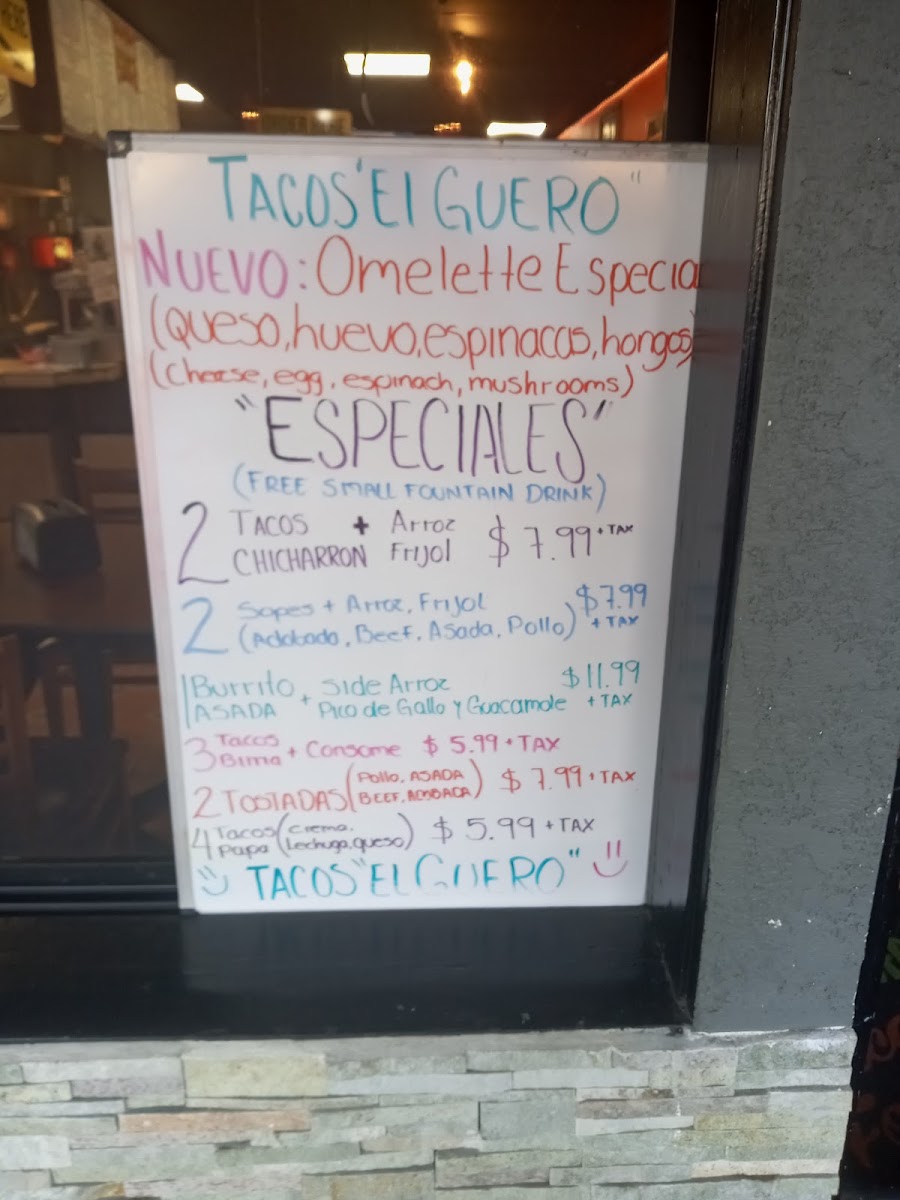 TACOS "El GUERO"
NUEVO: Omelette Especia
(queso, huevo, espinacas, hongos)
(cheese, egg, espinach, mushrooms)
"ESPECIALES"
(FREE SMALL FOUNTAIN DRINK)
2 TACOS CHICHARRON + Arroz Frijol $7.99 + TAX
2 Sopes + Arroz, Frijol $7.99
(Adobada, Beef, Asada, Pollo) + TAX
1 Burrito ASADA + Side Arroz $11.99
Pico de Gallo y Guacamole + TAX
3 Tacos Birria + Consome $5.99 + TAX
2 TOSTADAS (Pollo, ASADA
BEEF, ) $7.99 + TAX
4 Tacos Papa (crema,
Lechuga, queso) $5.99 + TAX
TACOS "EL GUERO"